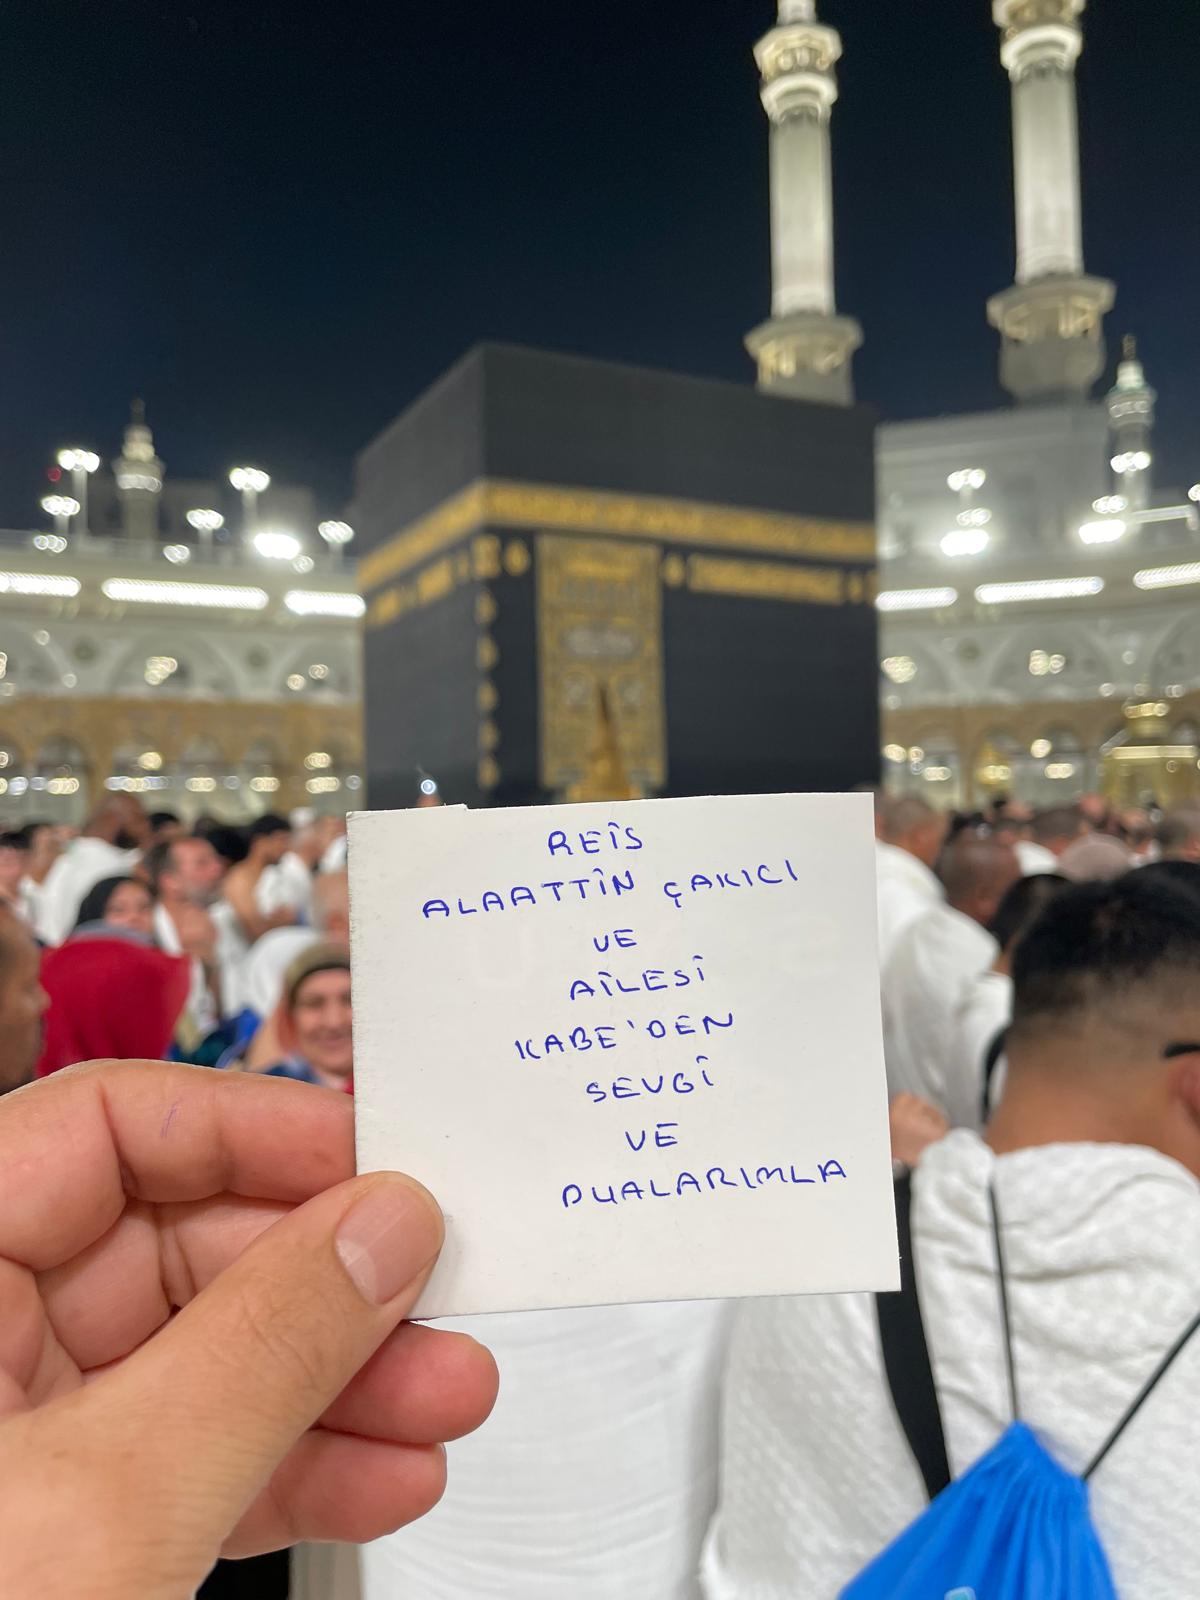 REİS
ALAATTİN ÇAKICI
VE
AİLESİ
KABE'DEN
SEVGİ
VE
DUALARIMLA